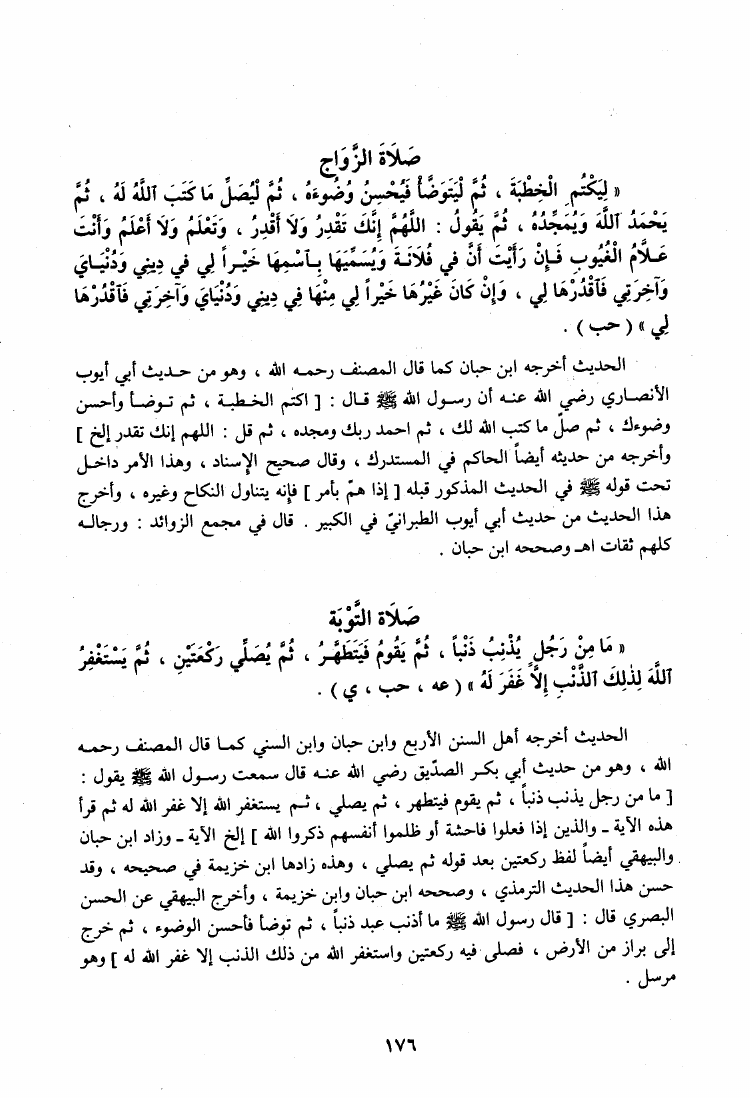 صَلَاةَ الزَّوَاجِ
« لِيَكْتُمِ الْخِطْبَةَ ، ثُمَّ لْيَتَوَضَّأْ فَيُحْسِنُ وُضُوءَهُ ، ثُمَّ لْيُصَلِّ مَا كَتَبَ اللَّهُ لَهُ ، ثُمَّ
يَحْمَدُ اللَّهَ وَيُمَجِّدُهُ ، ثُمَّ يَقُولُ : اللَّهُمَّ إِنَّكَ تَقْدِرُ وَلَا أَقْدِرُ ، وَتَعْلَمُ وَلَا أَعْلَمُ وَأَنْتَ
عَلَّامُ الْغُيُوبِ فَإِنْ رَأَيْتَ أَنَّ في فُلَانَةَ وَيُسَمِّيَهَا بِاسْمِهَا خَيْراً لِي في دِيني وَدُنْيَايَ
وَآخِرَتِي فَاقْدُرْهَا لِي ، وَإِنْ كَانَ غَيْرُهَا خَيْراً لِي مِنْهَا فِي دِيني وَدُنْيَايَ وَآخِرَتِي فَاقْدُرْهَا
لِي » ( حب ) .
الحديث أخرجه ابن حبان كما قال المصنف رحمه الله ، وهو من حديث أبي أيوب
الأنصاري رضي الله عنه أن رسول الله ﷺ قال : [ اكتم الخطبة ، ثم توضأ وأحسن
وضوءك ، ثم صلّ ما كتب الله لك ، ثم احمد ربك ومجده ، ثم قل : اللهم إنك تقدر إلخ ]
وأخرجه من حديثه أيضاً الحاكم في المستدرك ، وقال صحيح الإسناد ، وهذا الأمر داخل
تحت قوله ﷺ في الحديث المذكور قبله [ إذا همّ بأمر ] فإنه يتناول النكاح وغيره ، وأخرج
هذا الحديث من حديث أبي أيوب الطبرانيّ في الكبير . قال في مجمع الزوائد : ورجاله
كلهم ثقات اهـ وصححه ابن حبان .
صَلَاةَ التَّوْبَة
« مَا مِنْ رَجُلٍ يُذْنِبُ ذَنْباً ، ثُمَّ يَقُومُ فَيَتَطَهَّرُ ، ثُمَّ يُصَلِّي رَكْعَتَيْنِ ، ثُمَّ يَسْتَغْفِرُ
اللَّهَ لِذٰلِكَ الذَّنْبِ إِلاَّ غَفَرَ لَهُ » ( عه ، حب ، ي ) .
الحديث أخرجه أهل السنن الأربع وابن حبان وابن السني كما قال المصنف رحمه
الله ، وهو من حديث أبي بكر الصدّيق رضي الله عنه قال سمعت رسول الله ﷺ يقول :
[ ما من رجل يذنب ذنباً ، ثم يقوم فيتطهر ، ثم يصلي ، ثم يستغفر الله إلا غفر الله له ثم قرأ
هذه الآية ـ والذين إذا فعلوا فاحشة أو ظلموا أنفسهم ذكروا الله ] إلخ الآية ـ وزاد ابن حبان
والبيهقي أيضاً لفظ ركعتين بعد قوله ثم يصلي ، وهذه زادها ابن خزيمة في صحيحه ، وقد
حسن هذا الحديث الترمذي ، وصححه ابن حبان وابن خزيمة ، وأخرج البيهقي عن الحسن
البصري قال : [ قال رسول الله ﷺ ما أذنب عبد ذنباً ، ثم توضأ فأحسن الوضوء ، ثم خرج
إلى براز من الأرض ، فصلى فيه ركعتين واستغفر الله من ذلك الذنب إلا غفر الله له ] وهو
مرسل .
١٧٦